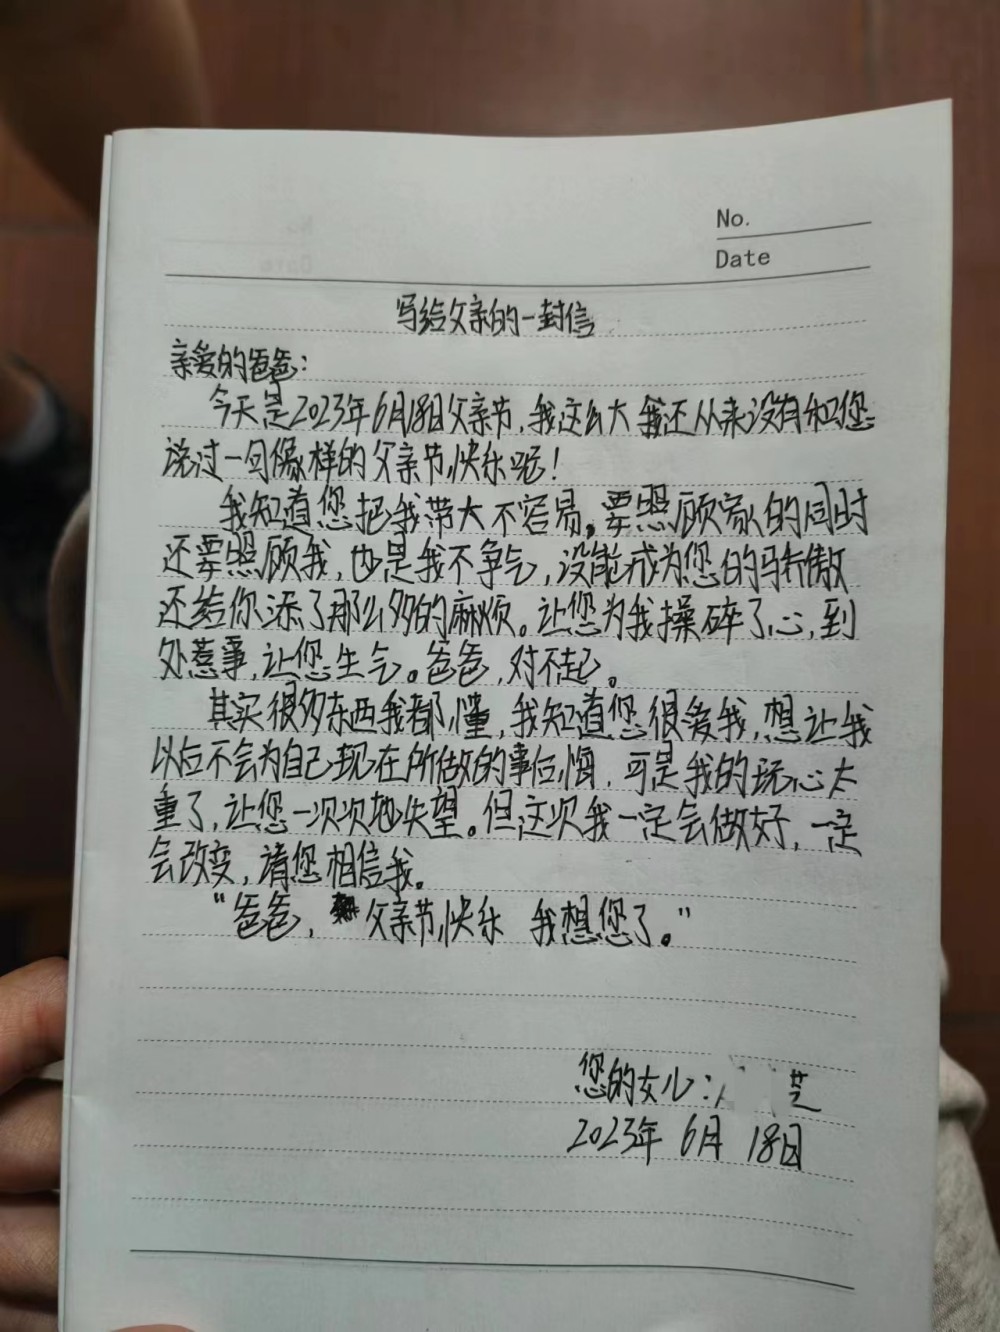 No.
Date
写给父亲的一封信
亲爱的爸爸:
今天是2023年6月18日父亲节,我这么大我还从来没有和您
说过一句像样的父亲节快乐呢!
我知道您把我带大不容易。要照顾家的同时
还要照顾我,也是我不争气,没能成为您的骄傲
还给你添了那么多的麻烦。让您为我操碎了心,到
处惹事,让您生气。爸爸,对不起。
其实很多东西我都懂,我知道您很爱我,想让我
以后不会为自己现在所做的事后悔,可是我的玩心太
重了,让您一次次地失望。但这次我一定会做好,一定
会改变,请您相信我。
“爸爸,父亲节快乐 我想您了。”
您的女儿:芝
2023年 6月 18日